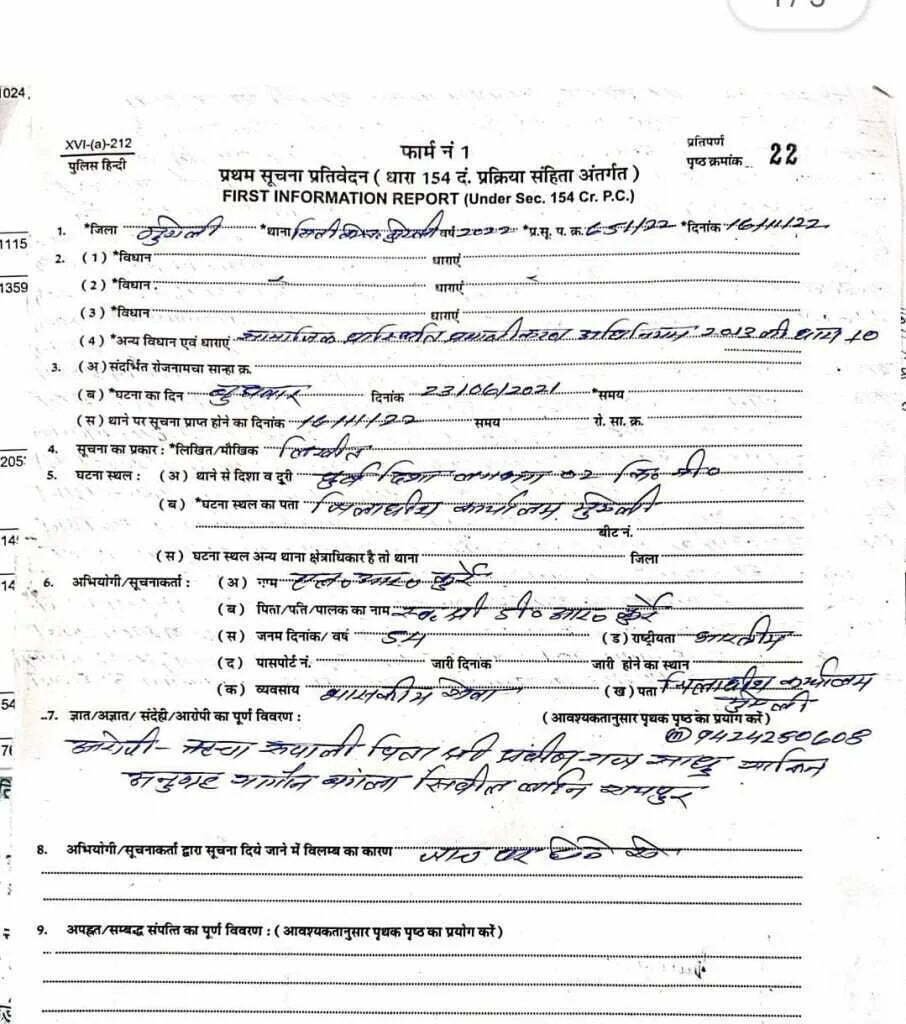 1024,
XVI-(a)-212
पुलिस हिन्दी
फार्म नं 1
प्रतिपर्ण
पृष्ठ क्रमांक 22
प्रथम सूचना प्रतिवेदन ( धारा 154 दं. प्रक्रिया संहिता अंतर्गत )
FIRST INFORMATION REPORT (Under Sec. 154 Cr. P.C.)
1. *जिला मुंगेली *थाना सिटी मुंगेली वर्ष 2022 *प्र.सू. प. क्र. 651/22 *दिनांक 16/11/22
1115
2. ( 1 ) *विधान धाराएं
1359
( 2 ) *विधान : धाराएं
( 3 ) *विधान धाराएं
( 4 ) *अन्य विधान एवं धाराएं सामाजिक प्रास्थिति प्रमाणीकरण अधिनियम 2013 की धारा 10
3. ( अ ) संदर्भित रोजनामचा सान्हा क्र.
( ब ) *घटना का दिन बुधवार दिनांक 23/06/2021 *समय
( स ) थाने पर सूचना प्राप्त होने का दिनांक 16/11/22 समय रो. सा. क्र.
4. सूचना का प्रकार : *लिखित/मौखिक लिखीत
205
5. घटना स्थल : ( अ ) थाने से दिशा व दूरी पूर्व दिशा लगभग 02 कि० मी०
( ब ) *घटना स्थल का पता जिलाधीश कार्यालय मुंगेली
बीट नं.
( स ) घटना स्थल अन्य थाना क्षेत्राधिकार है तो थाना जिला
14
6. अभियोगी/सूचनाकर्ता : ( अ ) नाम एल० आर० कुर्रे
( ब ) पिता/पति/पालक का नाम स्व. श्री डी० आर० कुर्रे
( स ) जनम दिनांक/ वर्ष 54 ( ड ) राष्ट्रीयता भारतीय
( द ) पासपोर्ट नं. जारी दिनांक जारी होने का स्थान
( क ) व्यवसाय शासकीय सेवा ( ख ) पता जिलाधीश कार्यालय
मुंगेली
54
7. ज्ञात/अज्ञात/ संदेही/आरोपी का पूर्ण विवरण : ( आवश्यकतानुसार पृथक पृष्ठ का प्रयोग करें )
(m) 9424280608
आरोपी - ऋचा रूपाली पिता श्री प्रवीण राज साधु साकिन
अनुग्रह बंगला सिवील लाईन रायपुर
8. अभियोगी/सूचनाकर्ता द्वारा सूचना दिये जाने में विलम्ब का कारण जांच पर
9. अपहृत/सम्बद्ध संपत्ति का पूर्ण विवरण : ( आवश्यकतानुसार पृथक पृष्ठ का प्रयोग करें )